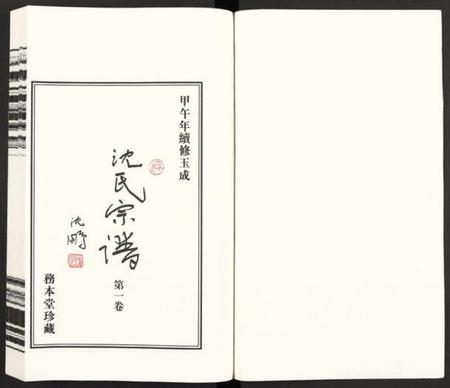 甲午年續修玉成
沈氏宗譜
第一卷
沈鵬
務本堂珍藏